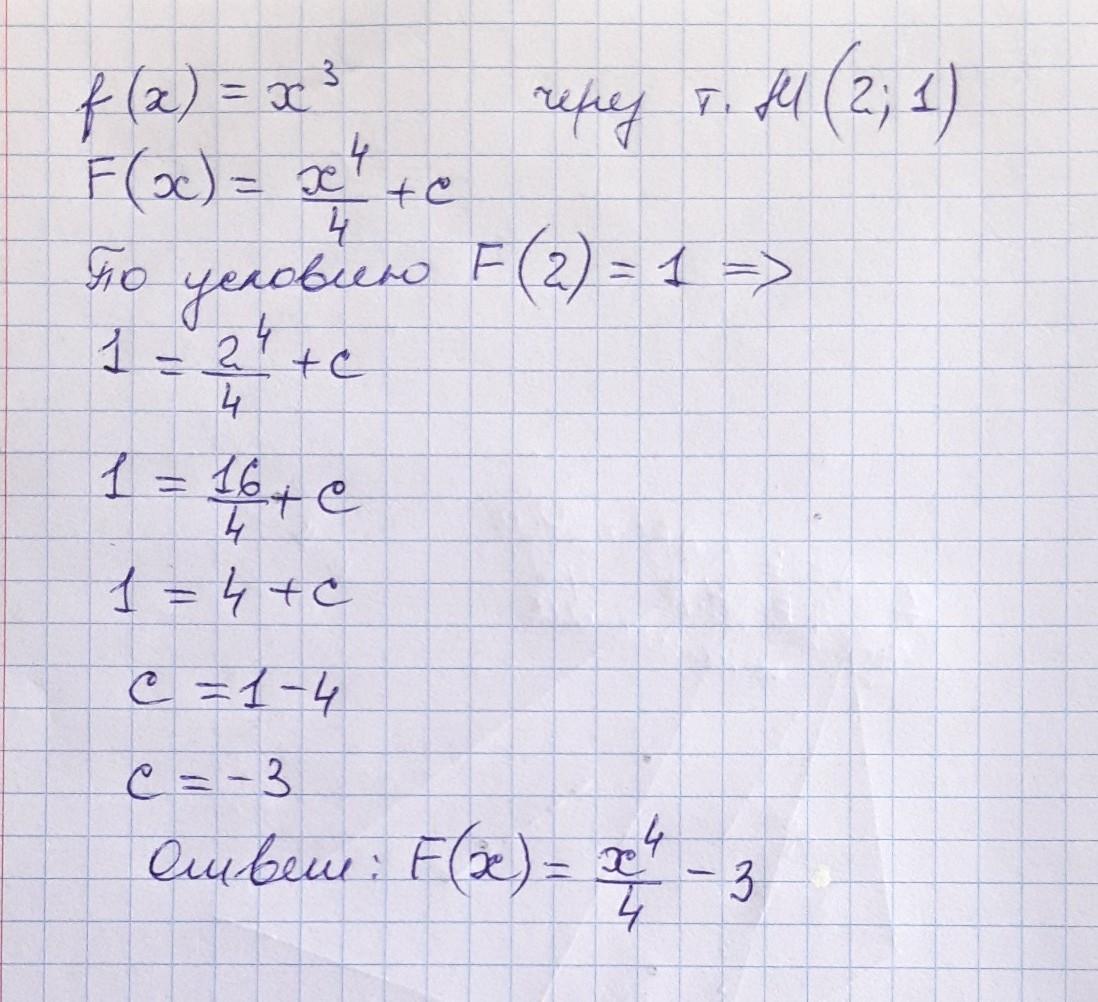 f(x) = x³ через т. М(2; 1)
F(x) = x⁴/4 + c
По условию F(2) = 1 =>
1 = 2⁴/4 + c
1 = 16/4 + c
1 = 4 + c
c = 1 - 4
c = -3
Ответ: F(x) = x⁴/4 - 3